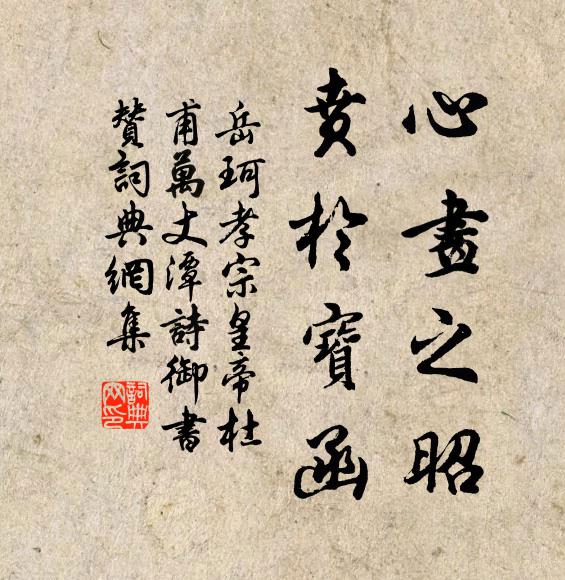 心畫之昭
賁於寶函
岳珂孝宗皇帝杜
甫萬丈潭詩御書
贊詞典網集
詞典
网印